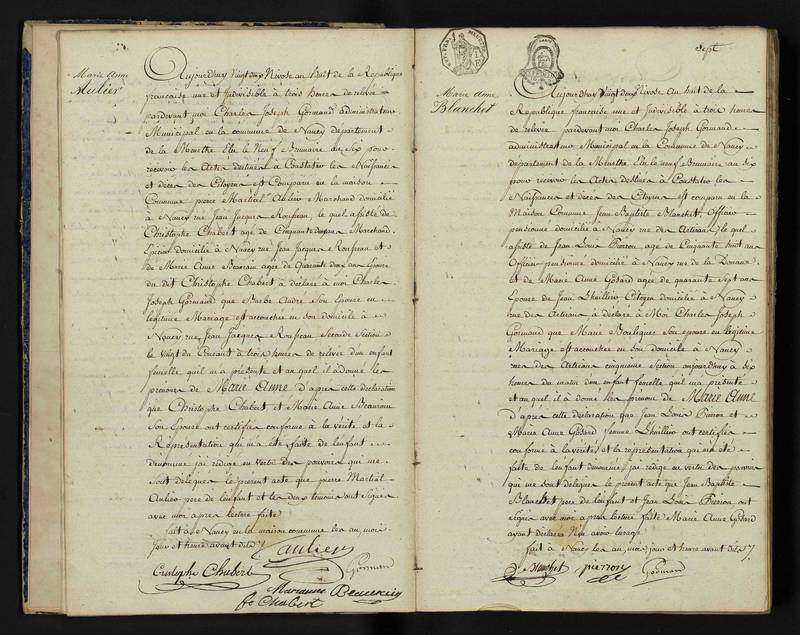 Marie Anne
Aulier
Aujourdhuy Vingt deux Nivose an huit de la Republique
française une et Indivisible à trois heures de relevée
pardevant moi Charles Joseph Gormand administrateur
Municipal en la commune de Nancy département
de la Meurthe Elu le Neuf Brumaire an Six pour
recevoir les Actes destinés à Constater les Naissances
et décès des Citoyens est Comparu en la maison
Commune pierre Martial Aulier Marchand domicilié
à Nancy rue Jean Jacques Rousseau, lequel assisté de
Christophe Chabert agé de Cinquante ans Marchand
Epicier domicilié à Nancy rue Jean Jacques Rousseau et
de Marie Anne Beaurain agée de Quarante deux ans Epouse
du dit Christophe Chabert à déclaré à moi Charles
Joseph Gormand que Barbe Audre Son Epouse en
légitime Mariage est accouchée en Son domicile à
Nancy rue Jean Jacques Rousseau Seconde Section
le vingt du Courant à trois heures de relevée d'un enfant
femelle quil m'a présenté et au quel il a donné les
prenoms de Marie Anne d'après cette déclaration
que Christophe Chabert et Marie Anne Beaurain
Son Epouse ont certifiée conforme à la vérité et la
Représentation qui m'a été faite de l'enfant
dénommé j'ai rédigé en vertu des pouvoirs qui me
Sont délégués le present acte que pierre Martial
Aulier pere de l'enfant et les deux temoins ont Signés
avec moi apres lecture faite
fait à Nancy en la maison commune les an, mois
Jour et heure avant dits
aulier
Cristophe Chabert
Gormand
Marianne Beaurain
fe Chabert
Sept
Marie Anne
Blanchet
Aujourdhuy Vingt deux Nivose an huit de la
Republique française une et Indivisible à trois heures
de relevée pardevant moi Charles Joseph Gormand
administrateur Municipal en la Commune de Nancy
département de la Meurthe Elu le neuf Brumaire an Six
pour recevoir les Actes destinés à Constater les
Naissances et décès des Citoyens est comparu en la
Maison Commune Jean Baptiste Blanchet, Officier
pensionné domicilié à Nancy rue des Artisans le quel
assisté de Jean Louis Pierron agé de Cinquante huit ans
Officier pensionné domicilié à Nancy rue de la Douane
et de Marie Anne Godard agée de quarante Sept ans
Epouse de Jean Lhuillier Citoyen domicilié à Nancy
rue des Artisans à déclaré à Moi Charles Joseph
Gormand que Marie Boulogne Son épouse en légitime
Mariage est accouchée en Son domicile à Nancy
rue des Artisans cinquieme Section aujourdhuy à Six
heures du matin d'un enfant femelle quil m'a présenté
et au quel il a donné les prenoms de Marie Anne
d'après cette déclaration que Jean Louis Pierron et
Marie Anne Godard femme Lhuillier ont certifiée
conforme à la vérité et la représentation qui m'a été
faite de l'enfant dénommé j'ai rédigé en vertu des pouvoirs
qui me sont délégués le present acte que Jean Baptiste
Blanchet pere de l'enfant et Jean Louis Pierron ont
signés avec moi apres lecture faite Marie Anne Godard
ayant déclaré N'en avoir l'usage
fait à Nancy les an, mois jour et heure avant dits
Blanchet pierron Gormand